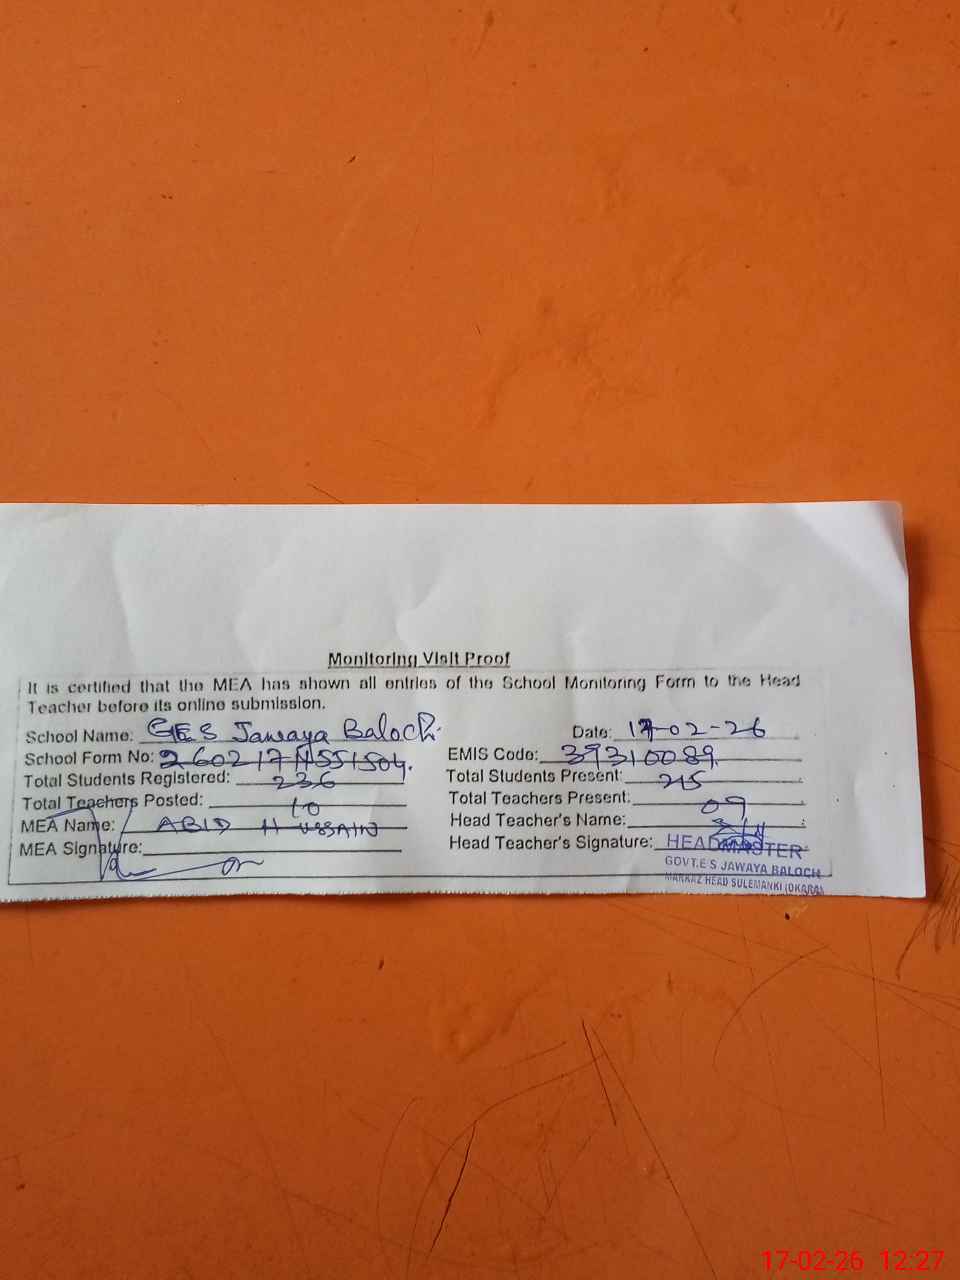 Monitoring Visit Proof
It is certified that the MEA has shown all entries of the School Monitoring Form to the Head
Teacher before its online submission.
School Name: GES Jawaya Baloch Date: 17-02-26
School Form No: EMIS Code: 39310089
Total Students Registered: 236 Total Students Present: 215
Total Teachers Posted: 10 Total Teachers Present: 09
MEA Name: ABID HUSSAIN Head Teacher's Name:
MEA Signature: Head Teacher's Signature:
HEADMASTER
GOVT.E S JAWAYA BALOCH
MARKAZ HEAD SULEMANKI (OKARA)
17-02-26 12:27